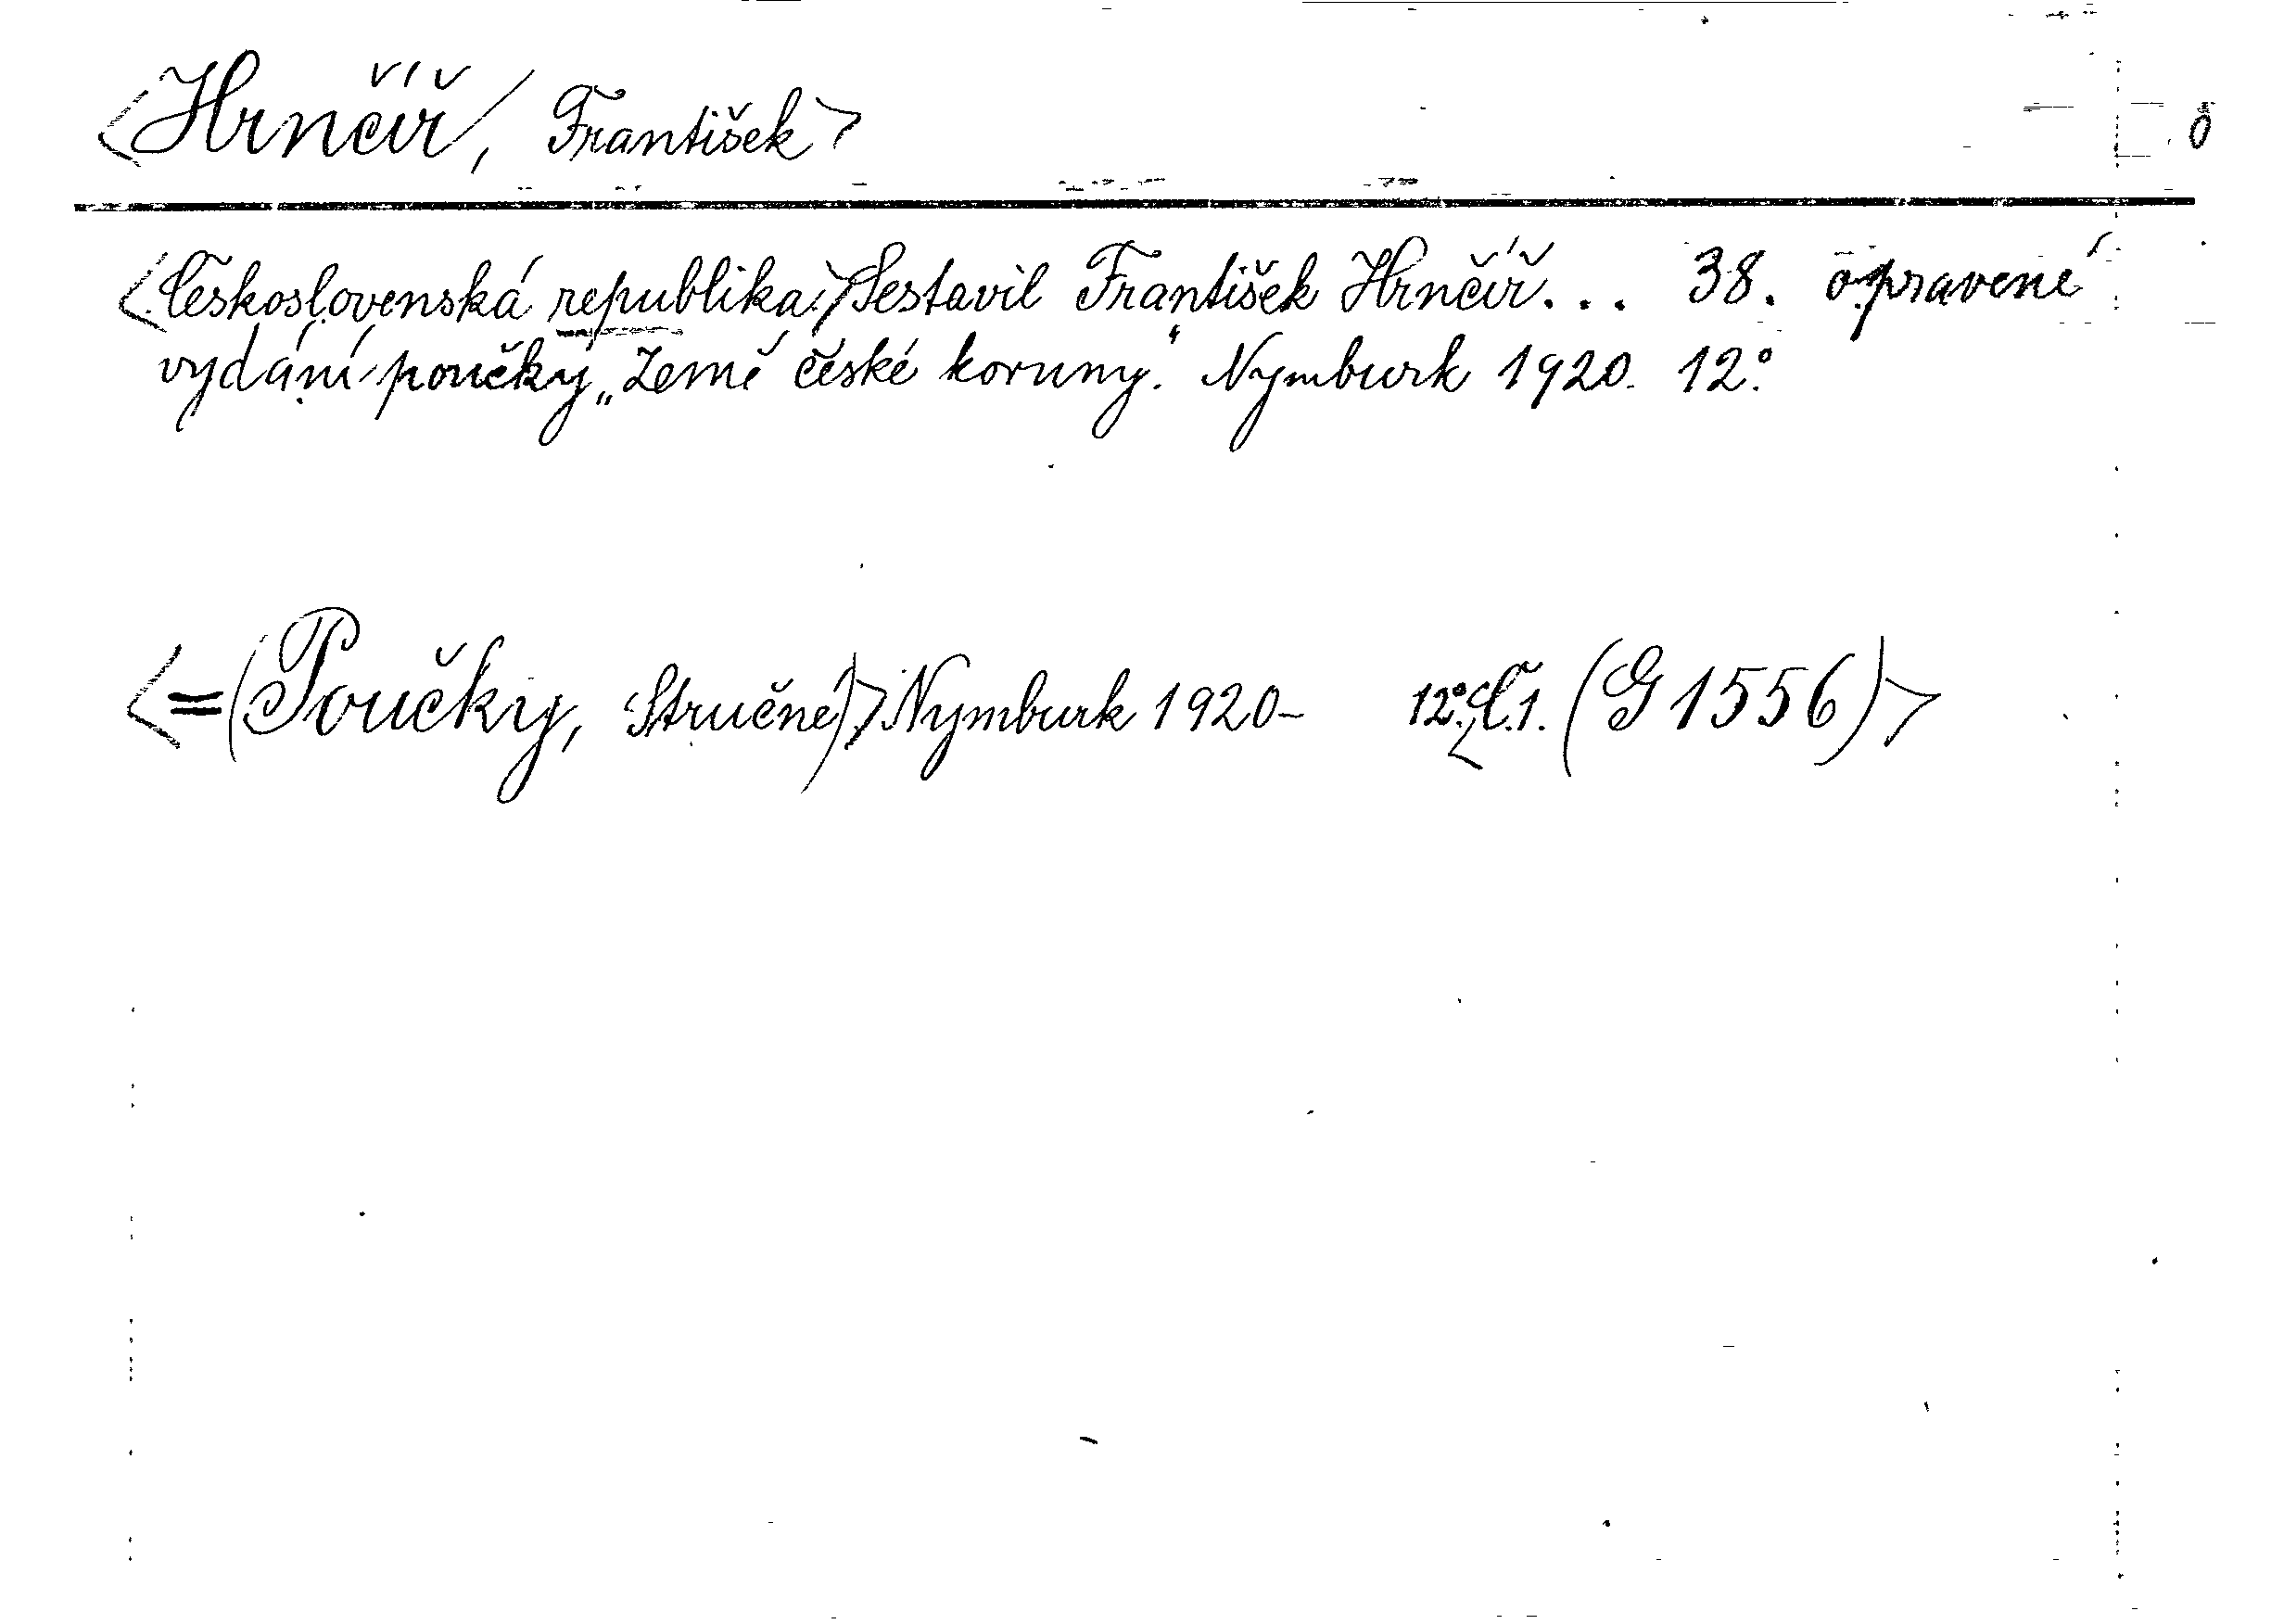 <Hrnčíř, František>
<Československá republika.> Sestavil František Hrnčíř... 38. opravené
vydání poučky „Země české koruny." Nymburk 1920. 12°.
<=(Poučky, Stručné)> Nymburk 1920– 12°. <Č.1. (G 1556)>